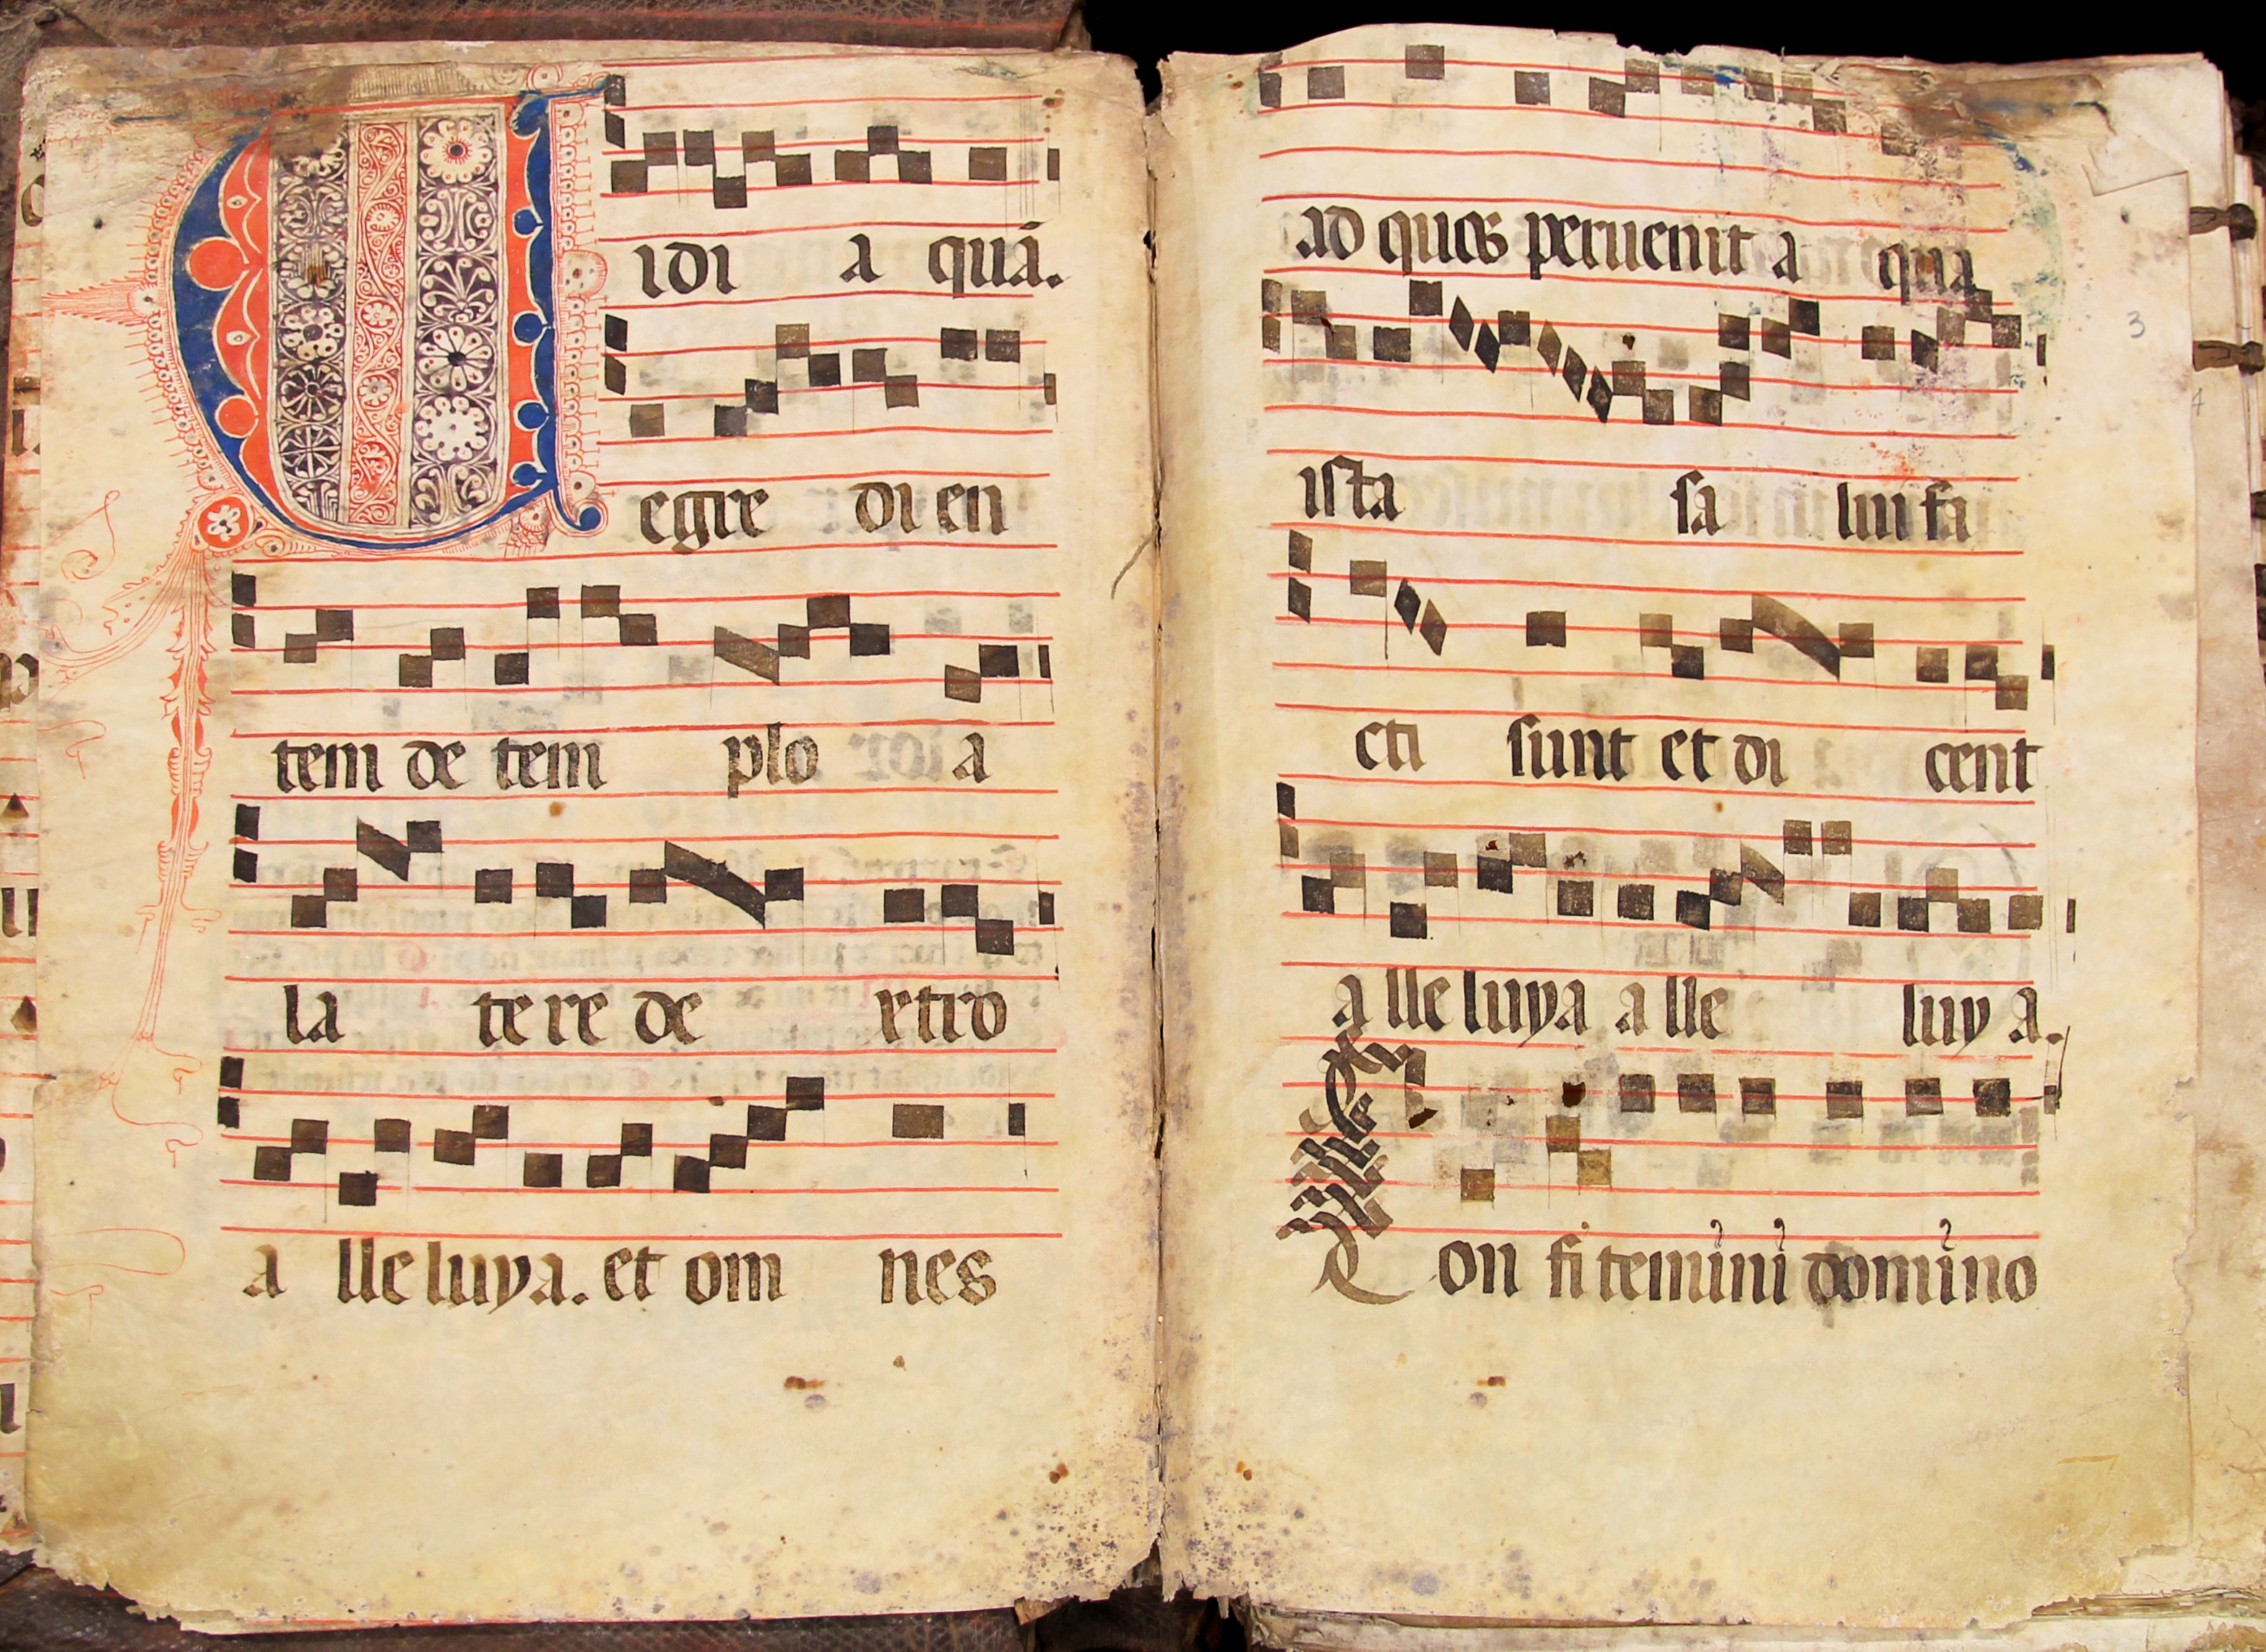 Vidi a quā.
egre di en
tem de tem plo a
la te re de xtro
a lle luya. et om nes
ad quos peruenit a qua
ista sa lui fa
cti sunt et di cent
a lle luya a lle luy a.
Con fi temini domino
3